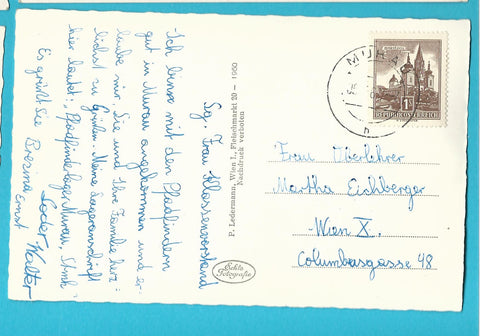 Sg. Frau Klassenvorstand
Ich bin mit den Pfadfindern
gut in Murau angekommen und er-
laube mir, Sie und Ihre Familie herz-
lichst zu Grüßen. Meine Lageranschrift
hier lautet: Pfadfinderlager Murau, Stmk.
Es grüßt Sie
Brezina Ernst
Walter
P. Ledermann, Wien I., Fleischmarkt 20 - 1960
Nachdruck verboten
Echte
Fotografie
MURAU
REPUBLIK ÖSTERREICH
Frau Oberlehrer
Martha Eichberger
Wien X.
Columbusgasse 48